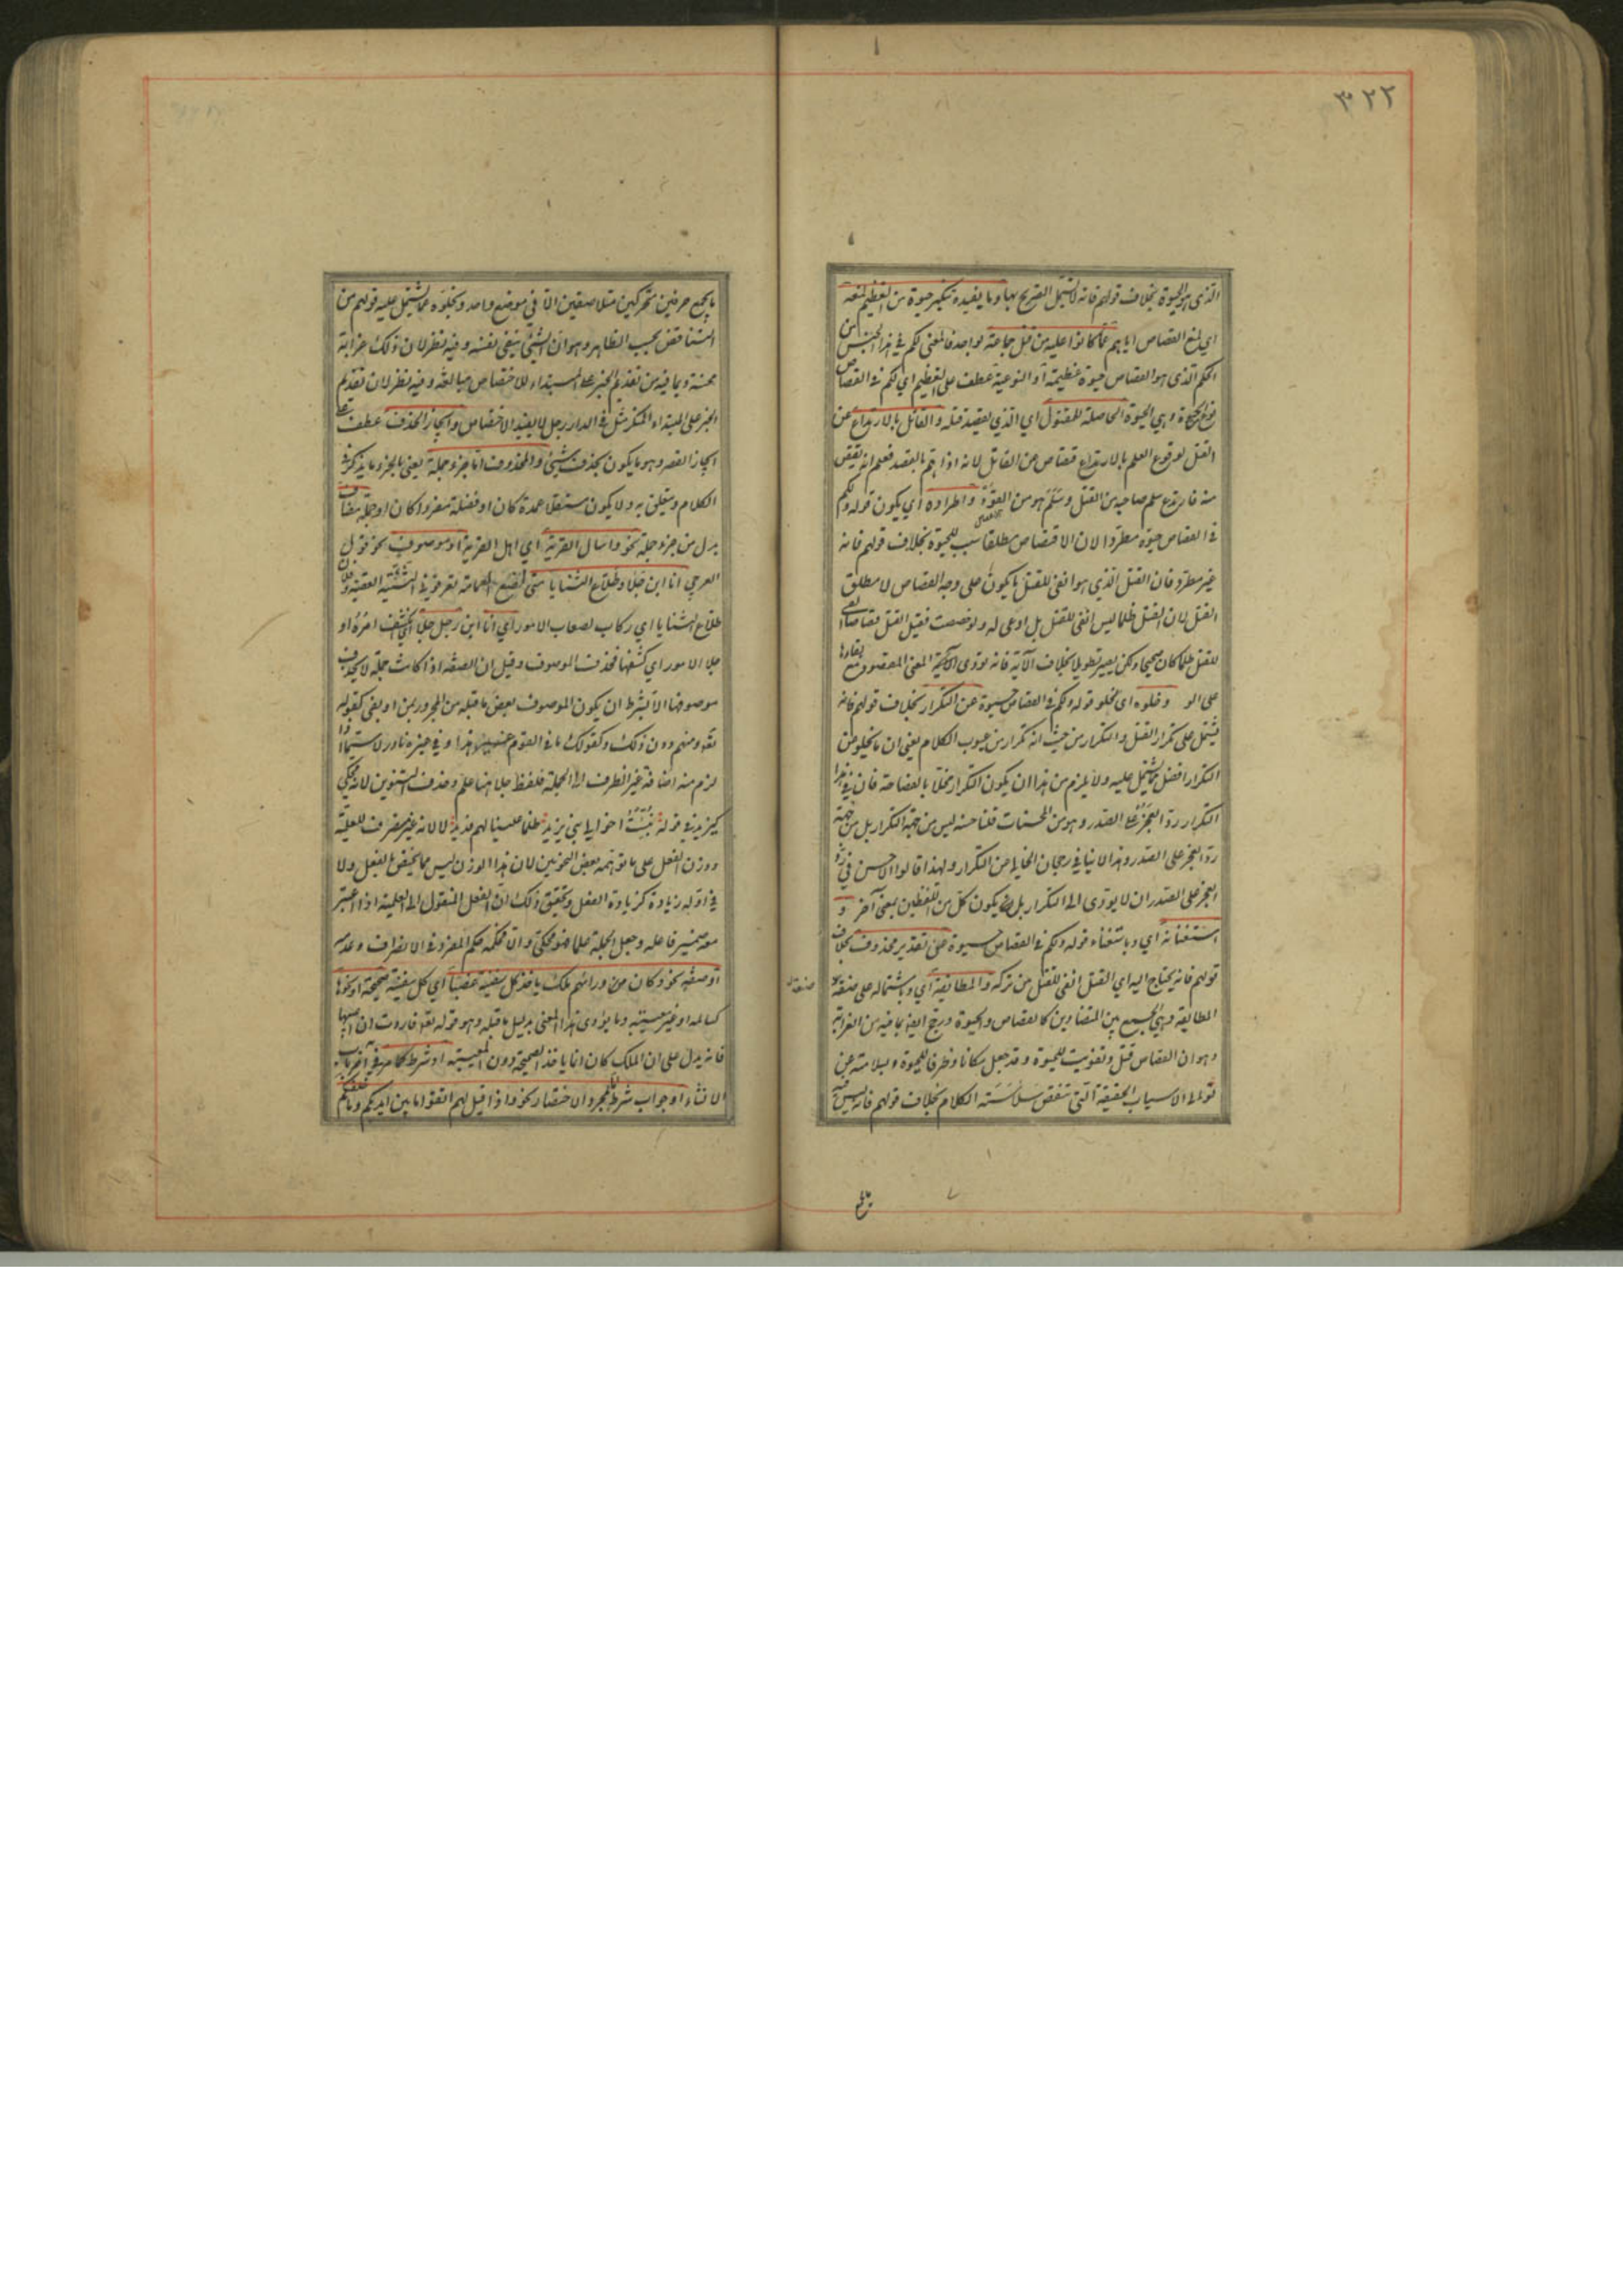 ٣٢٢
الذى هو الحيوة بخلاف قولهم فانه لا يشتمل التصريح بها وما يفيده تنكير حيوة من التعظيم لمنعه
اى لمنع القصاص اياهم عما كانوا عليه من قتل جماعة بواحد فالمعنى لكم فى هذا الجنس من
الحكم الذى هو القصاص حيوة عظيمة او النوعية عطف على التعظيم اى لكم فى القصاص
نوع من الحيوة وهى الحيوة الحاصلة للمقتول اى الذى يقصد قتله والقاتل بالارتداع عن
القتل لوقوع العلم بالارتداع قصاص من القاتل لانه اذا هم بالقصد فعلم انه يقتص
منه فارتدع سلم صاحبه من القتل وسلم هو من القود واطراده اى يكون قوله ولكم
فى القصاص حيوة مطردا لان الاقتصاص مطلقا سبب للحيوة بخلاف قولهم فانه
غير مطرد فان القتل الذى هو انفى للقتل ما يكون على وجه القصاص لا مطلق
القتل لان القتل ظلما ليس انفى للقتل بل ادعى له ولو خصصت فقيل القتل قصاصا انفى
للقتل ظلما كان صحيحا ولكن يصير تطويلا بخلاف الآية فانه تؤدى المعنى المقصود مع
على الو وخلوه اى بخلو قوله ولكم فى القصاص حيوة عن التكرار بخلاف قولهم فانه
يشتمل على تكرار القتل والتكرار من حيث انه تكرار من عيوب الكلام يعنى ان ما يخلو عن
التكرار افضل مما يشتمل عليه ولا يلزم من هذا ان يكون التكرار مخلا بالفصاحة فان قيل فى هذا
التكرار رد العجز على الصدر وهو من المحسنات قلنا حسنه ليس من جهة التكرار بل من جهة
رد العجز على الصدر وهذا لا ينافى رجحان الخالى من التكرار ولهذا قالوا الاحسن فى رد
العجز على الصدر ان لا يؤدى الى التكرار بل يكون كل من اللفظين بمعنى آخر و
استغنائه اى وباستغناء قوله ولكم فى القصاص حيوة عن تقدير محذوف بخلاف
قولهم فانه يحتاج اليه اى القتل انفى للقتل من تركه والمطابقة اى وباشتماله على صنعة
المطابقة وهى الجمع بين المتضادين كالقصاص والحيوة ورجح ايضا بما فيه من الغرابة
وهو ان القصاص قتل وتفويت للحيوة وقد جعل مكانا وظرفا للحيوة وبسلامته عن
توالى الاسباب الخفيفة التى تنقص سلاسة الكلام بخلاف قولهم فانه ليس فيه
ما يجمع حرفين متحركين متلاصقين الا فى موضع واحد وبخلوه عما يشتمل عليه قولهم من
التناقض بحسب الظاهر وهو ان الشئ ينفى نفسه وفيه نظر لان ذلك غرابة
محسنة وبما فيه من تقديم الخبر على المبتداء للاختصاص مبالغة وفيه نظر لان تقديم
الخبر على المبتداء المنكر مثل فى الدار رجل لا يفيد الاختصاص وايجاز الحذف عطف على
ايجاز القصر وهو ما يكون بحذف شئ والمحذوف اما جزء جملة يعنى بالجزء ما يذكر فى
الكلام ويتعلق به ولا يكون مستقلا عمدة كان او فضلة مفردا كان او جملة مضاف
بدل من جزء جملة نحو واسال القرية اى اهل القرية او موصوف نحو قول
العرجى انا ابن جلا وطلاع الثنايا متى اضع العمامة تعرفونى الثنية العقبة وفلان
طلاع الثنايا اى ركاب لصعاب الامور اى انا ابن رجل جلا اى انكشف امره او
جلا الامور اى كشفها فحذف الموصوف وقيل ان الصفة اذا كانت جملة لا يحذف
موصوفها الا بشرط ان يكون الموصوف بعض ما قبله من المجرور بمن او بفى كقوله
تعالى ومنهم دون ذلك وكقولك ما فى القوم دون هذا وفى غيره نادر لا سيما اذا
لزم منه اضافة غير الظرف الى الجملة فلفظ جلا هنا علم وحذف التنوين لانه محكى
كيزيد فى قوله نبئت اخوالى بنى يزيد ظلما علينا لهم فديد لا لانه غير منصرف للعلمية
ووزن الفعل على ما توهمه بعض النحويين لان هذا الوزن ليس مما يختص بالفعل ولا
فى اوله زيادة كزيادة الفعل وتحقيق ذلك ان الفعل المنقول الى العلمية اذا اعتبر
معه ضمير فاعله وجعل الجملة علما فهو محكى والا فحكمه حكم المفرد فى الانصراف وعدمه
او صفة نحو وكان من ورائهم ملك ياخذ كل سفينة غصبا اى كل سفينة صحيحة او نحوها
كسالمة او غير معيبة وما يؤدى هذا المعنى بدليل ما قبله وهو قوله تعالى فاردت ان اعيبها
فانه يدل على ان الملك كان انما ياخذ الصحيحة دون المعيبة او شرط كما مر فى آخر باب
الانشاء او جواب شرط اما لمجرد الاختصار نحو واذا قيل لهم اتقوا ما بين ايديكم وما خلفكم